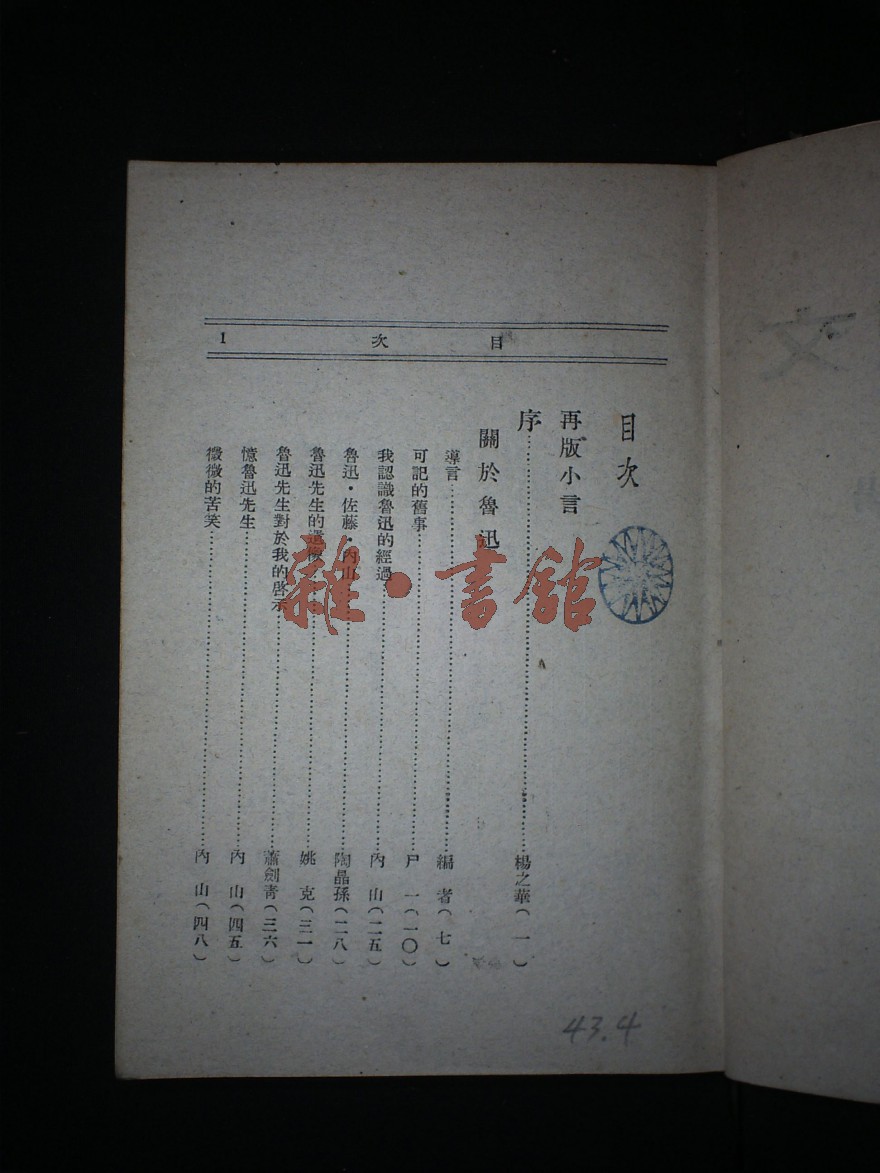 1 次 目
目次
再版小言
序……楊之華(一)
關於魯迅
導言……編 者(七)
可記的舊事……尸 一(一〇)
我認識魯迅的經過……內 山(二五)
魯迅・佐藤・內山……陶晶孫(二八)
魯迅先生的遺……姚 克(三一)
魯迅先生對於我的啓示……蕭劍青(三六)
憶魯迅先生……內 山(四五)
微微的苦笑……內 山(四八)
雜・書館
43.4
文